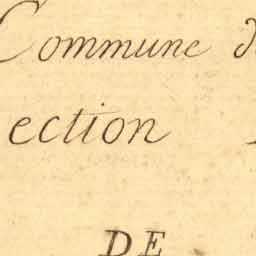 Commune d
ection
DE